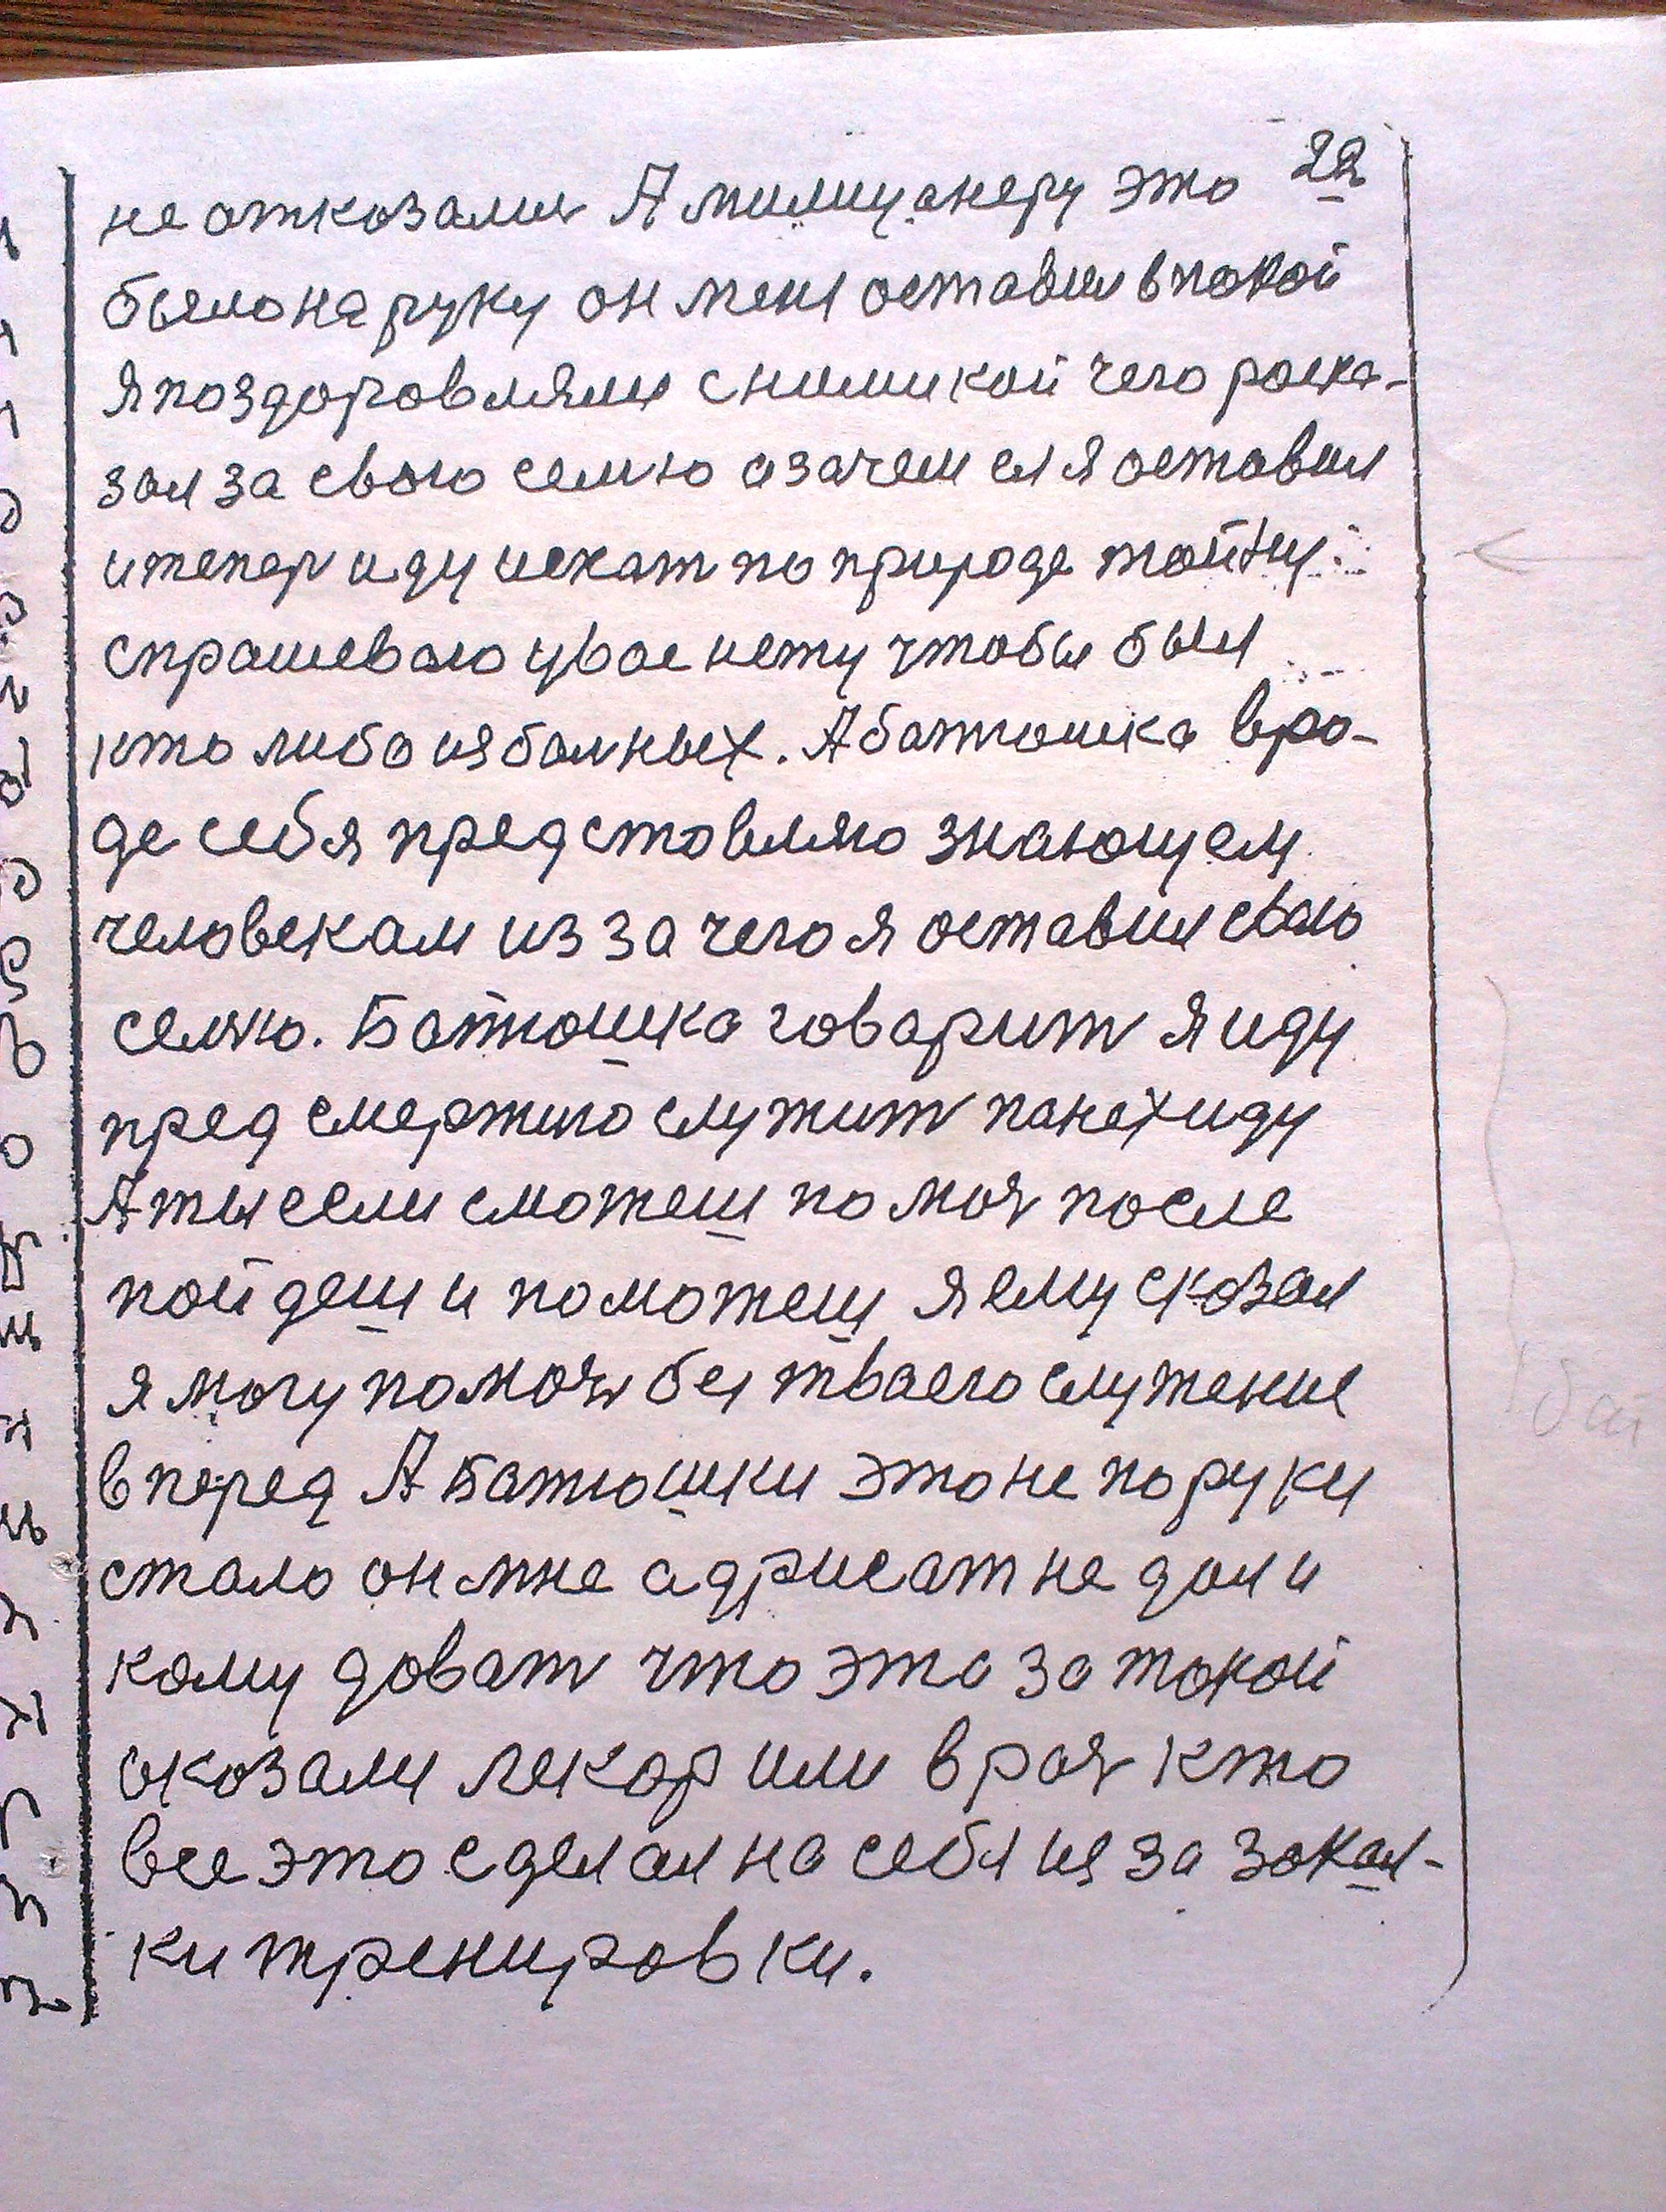 22
не откозалися А милицанеру это
было на руку он меня оставил в покой
я поздоровлялся с ними кой чего раска-
зал за свою семю а зачем ея я оставил
и тепер иду искат по природе тайну
спрашеваю у вас нету чтобы был
кто либо из болных. А батюшка вро-
де себя представляю знающем
человекам из за чего я оставил свою
семю. Батюшка говарит я иду
пред смертию служит панехиду
А ты если сможеш помоч после
пойдеш и поможеш я ему сказал
я могу помоч без тваего служение
вперед А Батюшки это не по руки
стало он мне адрисат не дал и
кому доват что это за такой
сказали лекар или врач кто
все это сделал на себя из за закал-
ки тренировки.